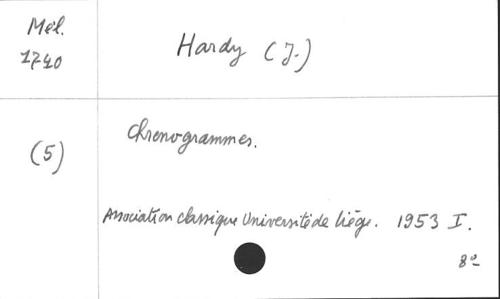 Mél.
1740
Hardy (J.)
(5)
Chronogrammes.
Association classique Université de Liége. 1953 I.
8º